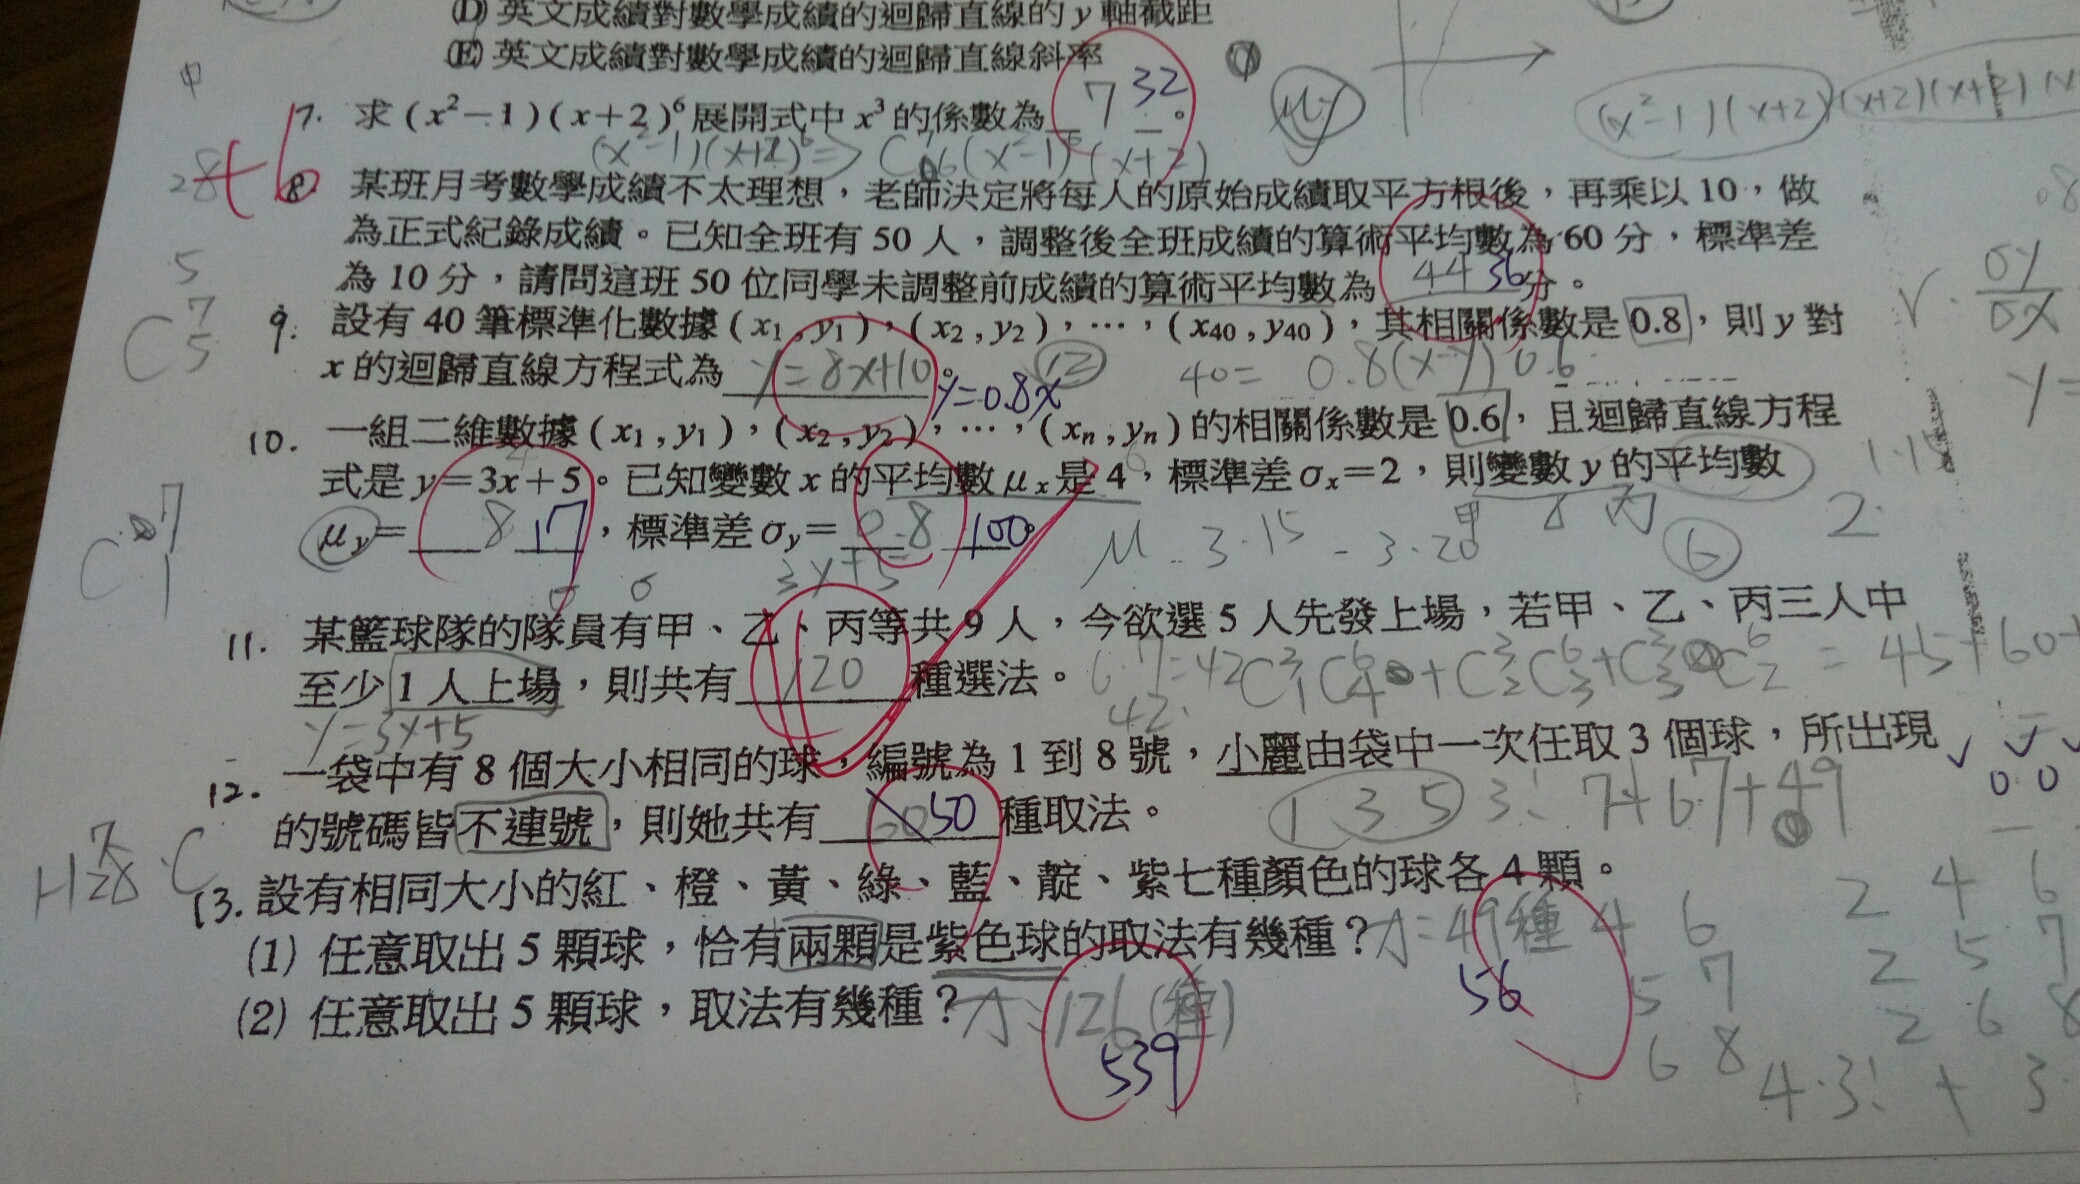 (D) 英文成績對數學成績的迴歸直線的 y 軸截距
(E) 英文成績對數學成績的迴歸直線斜率
7. 求 (x²－1)(x＋2)⁶ 展開式中 x³ 的係數為 7 32 。
8. 某班月考數學成績不太理想，老師決定將每人的原始成績取平方根後，再乘以 10，做
為正式紀錄成績。已知全班有 50 人，調整後全班成績的算術平均數為 60 分，標準差
為 10 分，請問這班 50 位同學未調整前成績的算術平均數為 44 36 分。
9. 設有 40 筆標準化數據 (x₁, y₁)，(x₂, y₂)，⋯，(x₄₀, y₄₀)，其相關係數是 0.8，則 y 對
x 的迴歸直線方程式為 y=8x+10 。 y=0.8x
10. 一組二維數據 (x₁, y₁)，(x₂, y₂)，⋯，(xₙ, yₙ) 的相關係數是 0.6，且迴歸直線方程
式是 y＝3x＋5。已知變數 x 的平均數 μₓ 是 4，標準差 σₓ＝2，則變數 y 的平均數
μy＝ 8 17 ，標準差 σy＝ 0.8 100 。
11. 某籃球隊的隊員有甲、乙、丙等共 9 人，今欲選 5 人先發上場，若甲、乙、丙三人中
至少 1 人上場，則共有 120 種選法。
y=3x+5
12. 一袋中有 8 個大小相同的球，編號為 1 到 8 號，小麗由袋中一次任取 3 個球，所出現
的號碼皆不連號，則她共有 50 種取法。
1 3 5 3!
13. 設有相同大小的紅、橙、黃、綠、藍、靛、紫七種顏色的球各 4 顆。
(1) 任意取出 5 顆球，恰有兩顆是紫色球的取法有幾種？ A=49種
56
(2) 任意取出 5 顆球，取法有幾種？ A=126(種)
539
4 6
5 7
6 8
2 4 6
2 5 7
2 6 8
4·3! + 3